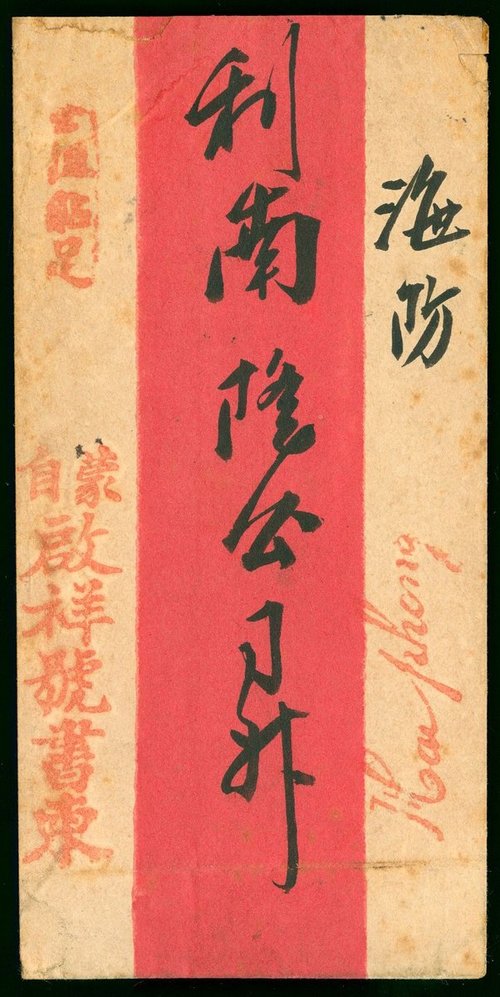 海防
Haiphong
利南隆公司升
蒙自
啟祥號書柬